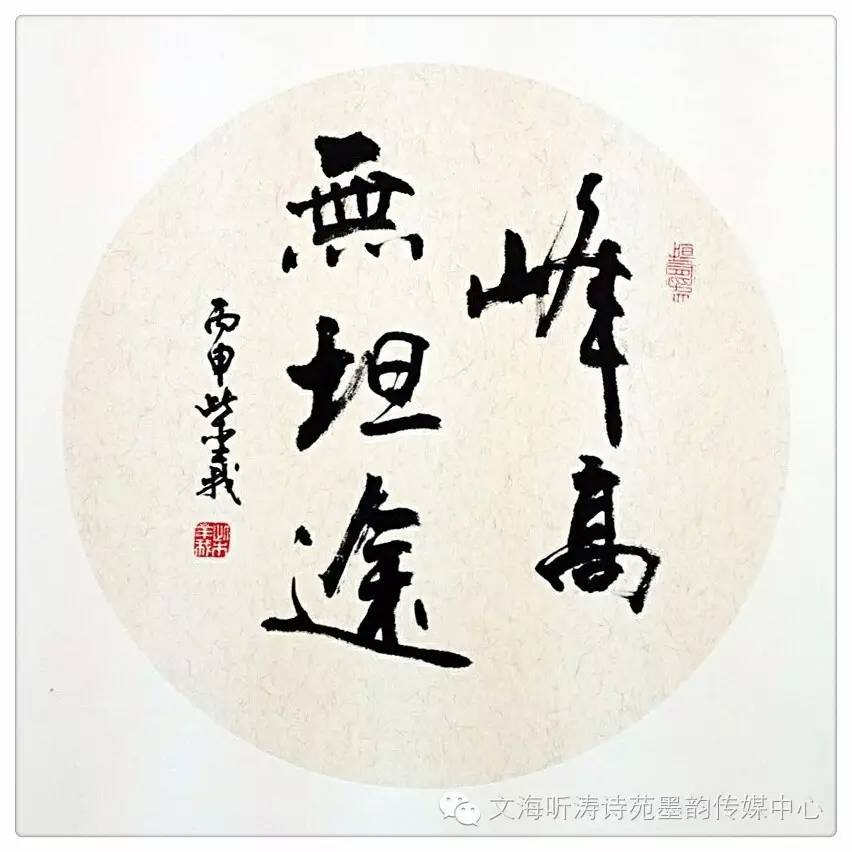 峰高
無坦途
丙申 柴義
文海听涛诗苑墨韵传媒中心